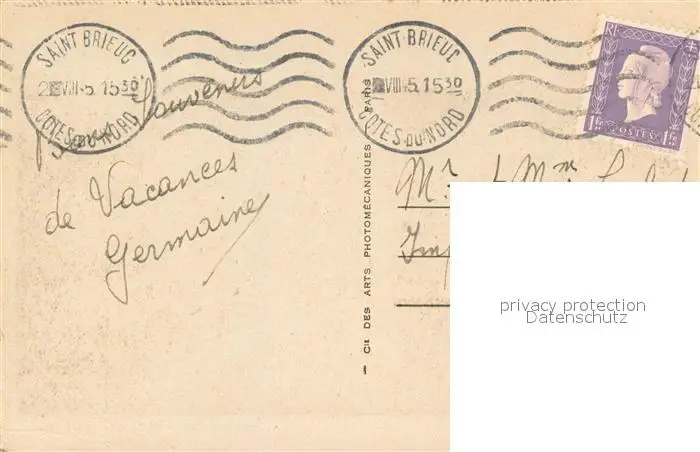 SAINT BRIEUC
15 30
COTES-DU-NORD
SAINT BRIEUC
VIII-5. 15 30
COTES-DU-NORD
RF
1 FR POSTES 1 FR
Bons Souvenirs
de Vacances
Germaine
Cie DES ARTS PHOTOMÉCANIQUES PARIS
Mr Mme
privacy protection
Datenschutz